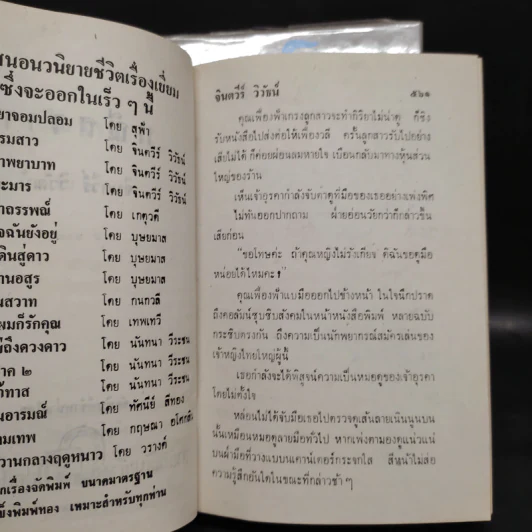 สนอนวนิยายชีวิตเรื่องเยี่ยม
ซึ่งจะออกในเร็ว ๆ นี้
ยาจอมปลอม โดย สุฟ้า
รมสาว โดย จินตวีร์ วิวัธน์
าพยาบาท โดย จินตวีร์ วิวัธน์
ะมาร โดย จินตวีร์ วิวัธน์
าถรรพณ์ โดย เกตุวดี
จฉันยังอยู่ โดย บุษยมาส
ดินสู่ดาว โดย บุษยมาส
านอสูร โดย บุษยมาส
นสวาท โดย กนกวลี
ผมก็รักคุณ โดย เทพเทวี
ถึงดวงดาว โดย นันทนา วีระชน
าค ๒ โดย นันทนา วีระชน
ทาส โดย นันทนา วีระชน
นอารมณ์ โดย ทัศนีย์ สีทอง
มเทพ โดย กฤษณา
วานกลางฤดูหนาว โดย วรางค์
กเรื่องจัดพิมพ์ ขนาดมาตรฐาน
ข็งพิมพ์ทอง เหมาะสำหรับทุกท่าน
จินตวีร์ วิวัธน์ ๕๖๑
คุณเพื่องฟ้าเกรงลูกสาวจะทำกิริยาไม่น่าดู ก็ชิง
รับหนังสือไปส่งต่อให้เพื่องวลี ครั้นลูกสาวรับไปอย่าง
เสียไม่ได้ ก็ค่อยผ่อนลมหายใจ เบือนกลับมาทางหุ้นส่วน
ใหญ่ของร้าน
เห็นเจ้าอุรคากำลังจับตาดูที่มือของเธออย่างเพ่งพิศ
ไม่ทันออกปากถาม ฝ่ายอ่อนวัยกว่าก็กล่าวขึ้น
เสียก่อน
“ขอโทษค่ะ ถ้าคุณหญิงไม่รังเกียจ ดิฉันขอดูมือ
หน่อยได้ไหมคะ?”
คุณเพื่องฟ้าแบมือออกไปข้างหน้า ในใจนึกปราด
ถึงคอลัมน์ซุบซิบสังคมในหน้าหนังสือพิมพ์ หลายฉบับ
กระซิบตรงกัน ถึงความเป็นนักพยากรณ์สมัครเล่นของ
เจ้าหญิงไทยใหญ่ผู้นี้
เธอกำลังจะได้พิสูจน์ความเป็นหมอดูของเจ้าอุรคา
โดยไม่ตั้งใจ
หล่อนไม่ได้จับมือเธอไปตรวจดูเส้นลายเนินนูนบน
นั้นเหมือนหมอดูลายมือทั่วไป หากเพ่งตามองดูแน่วแน่
บนฝ่ามือที่วางแบบนเคาน์เตอร์กระจกใส สีหน้าไม่ส่อ
ความรู้สึกอันใดในขณะที่กล่าวช้า ๆ